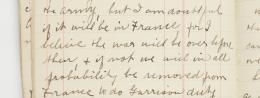 the army but I am doubtful
if it will be in France for I
believe the war will be over before
then & if not we will in all
probability be removed from
France to do Garrison duty